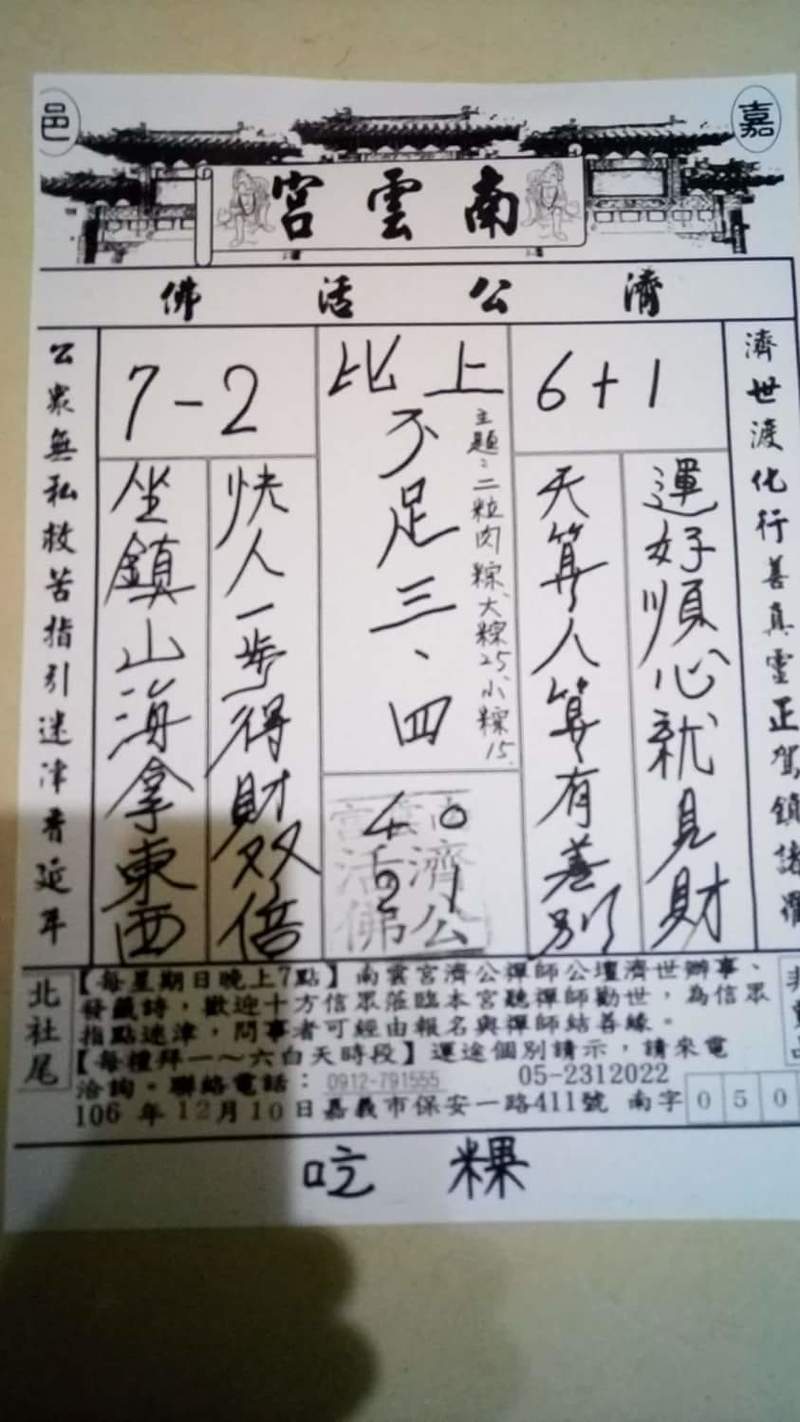 嘉邑
南雲宮
濟公活佛
濟世渡化行善真靈正駕鎮諸
6+1
運好順心就見財
天算人算有差別
比上
不足三、四
主題:二粒肉粽、大粽25小粽15.
40
21
南雲宮
濟公活佛
7-2
快人一步得財双倍
坐鎮山海拿東西
公眾無私救苦指引迷津看延年
北社尾
【每星期日晚上7點】南雲宮濟公禪師公壇濟世辦事、
發籤詩，歡迎十方信眾蒞臨本宮聽禪師勸世，為信眾
指點迷津，問事者可經由報名與禪師結善緣。
【每禮拜一～六白天時段】運途個別請示，請來電
洽詢。聯絡電話：0912-791555 05-2312022
106 年 12月 10日 嘉義市保安一路411號 南字 0 5 0
吃粿